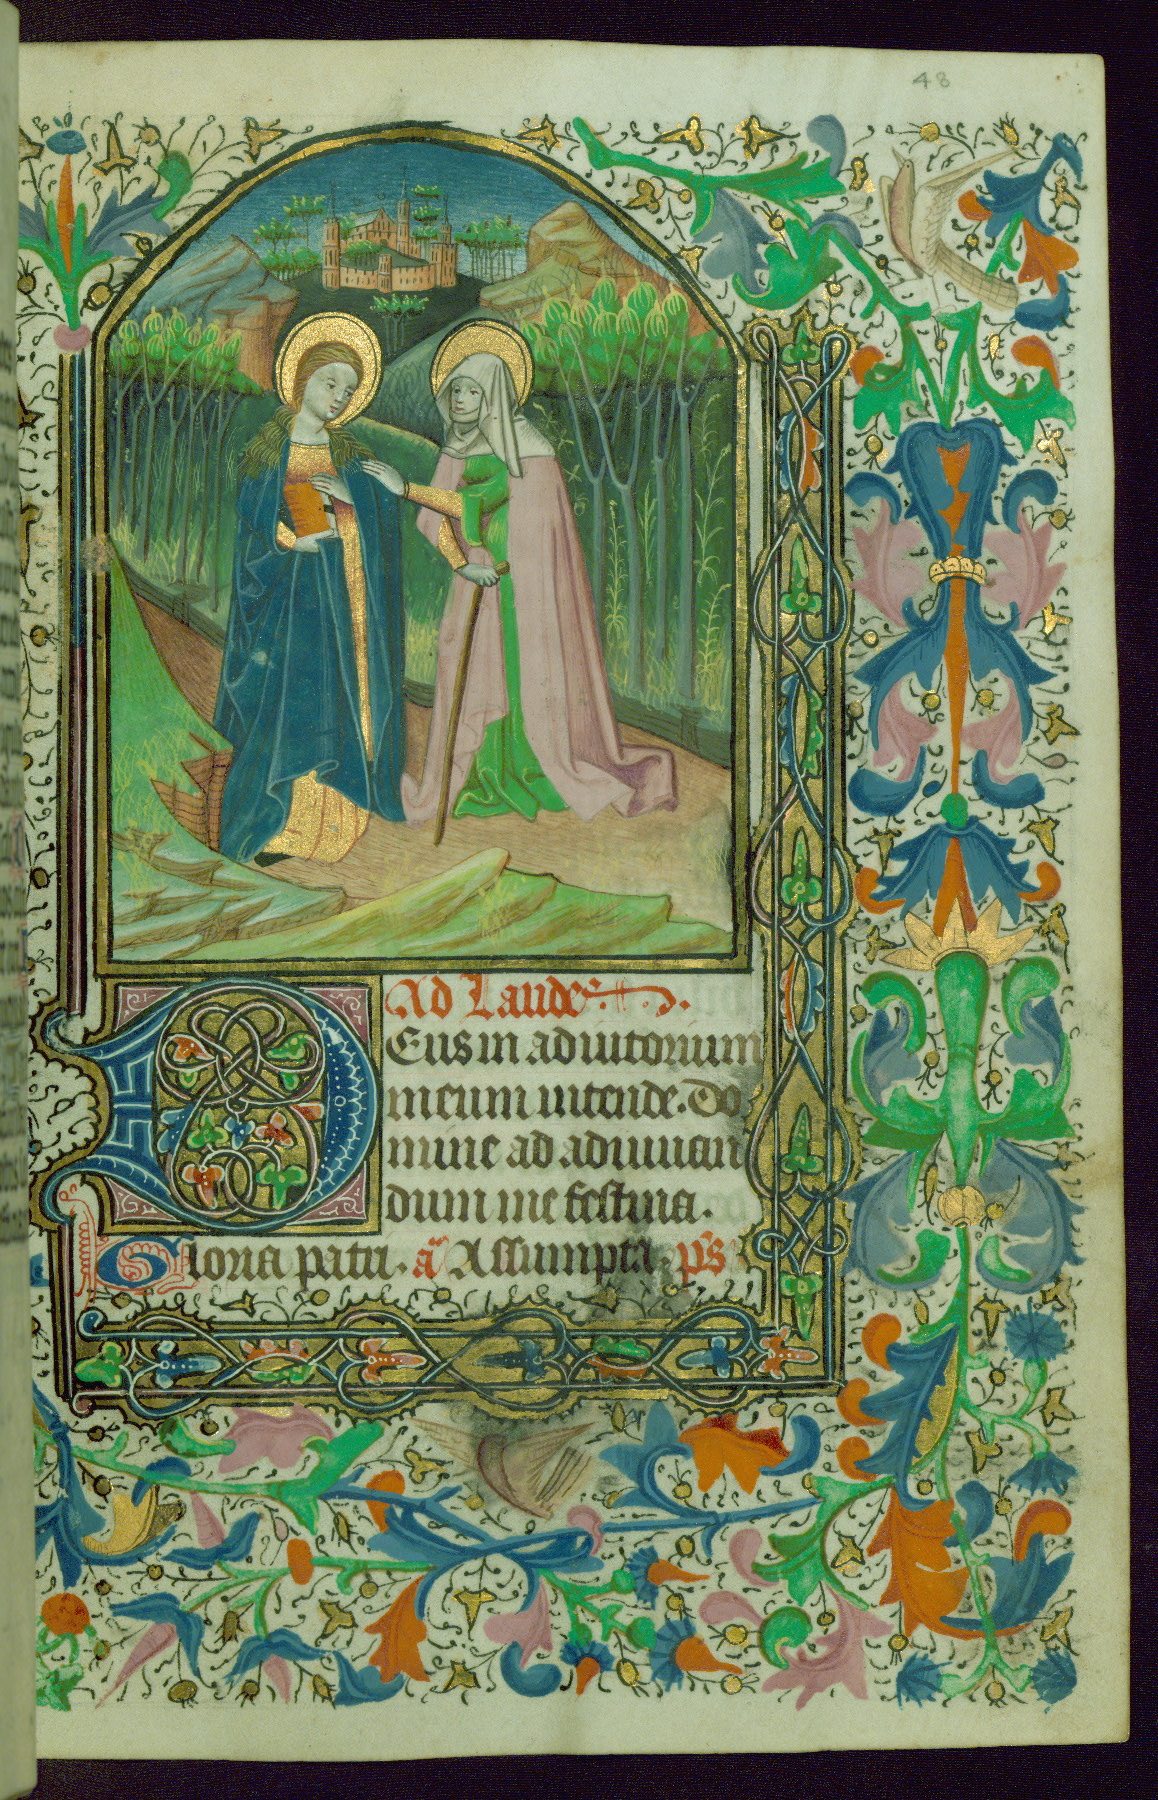 48
Ad Laudes.
Deus in adiutorium
meum intende. Do
mine ad adiuuan
dum me festina.
Gloria patri. a Assumpta. ps